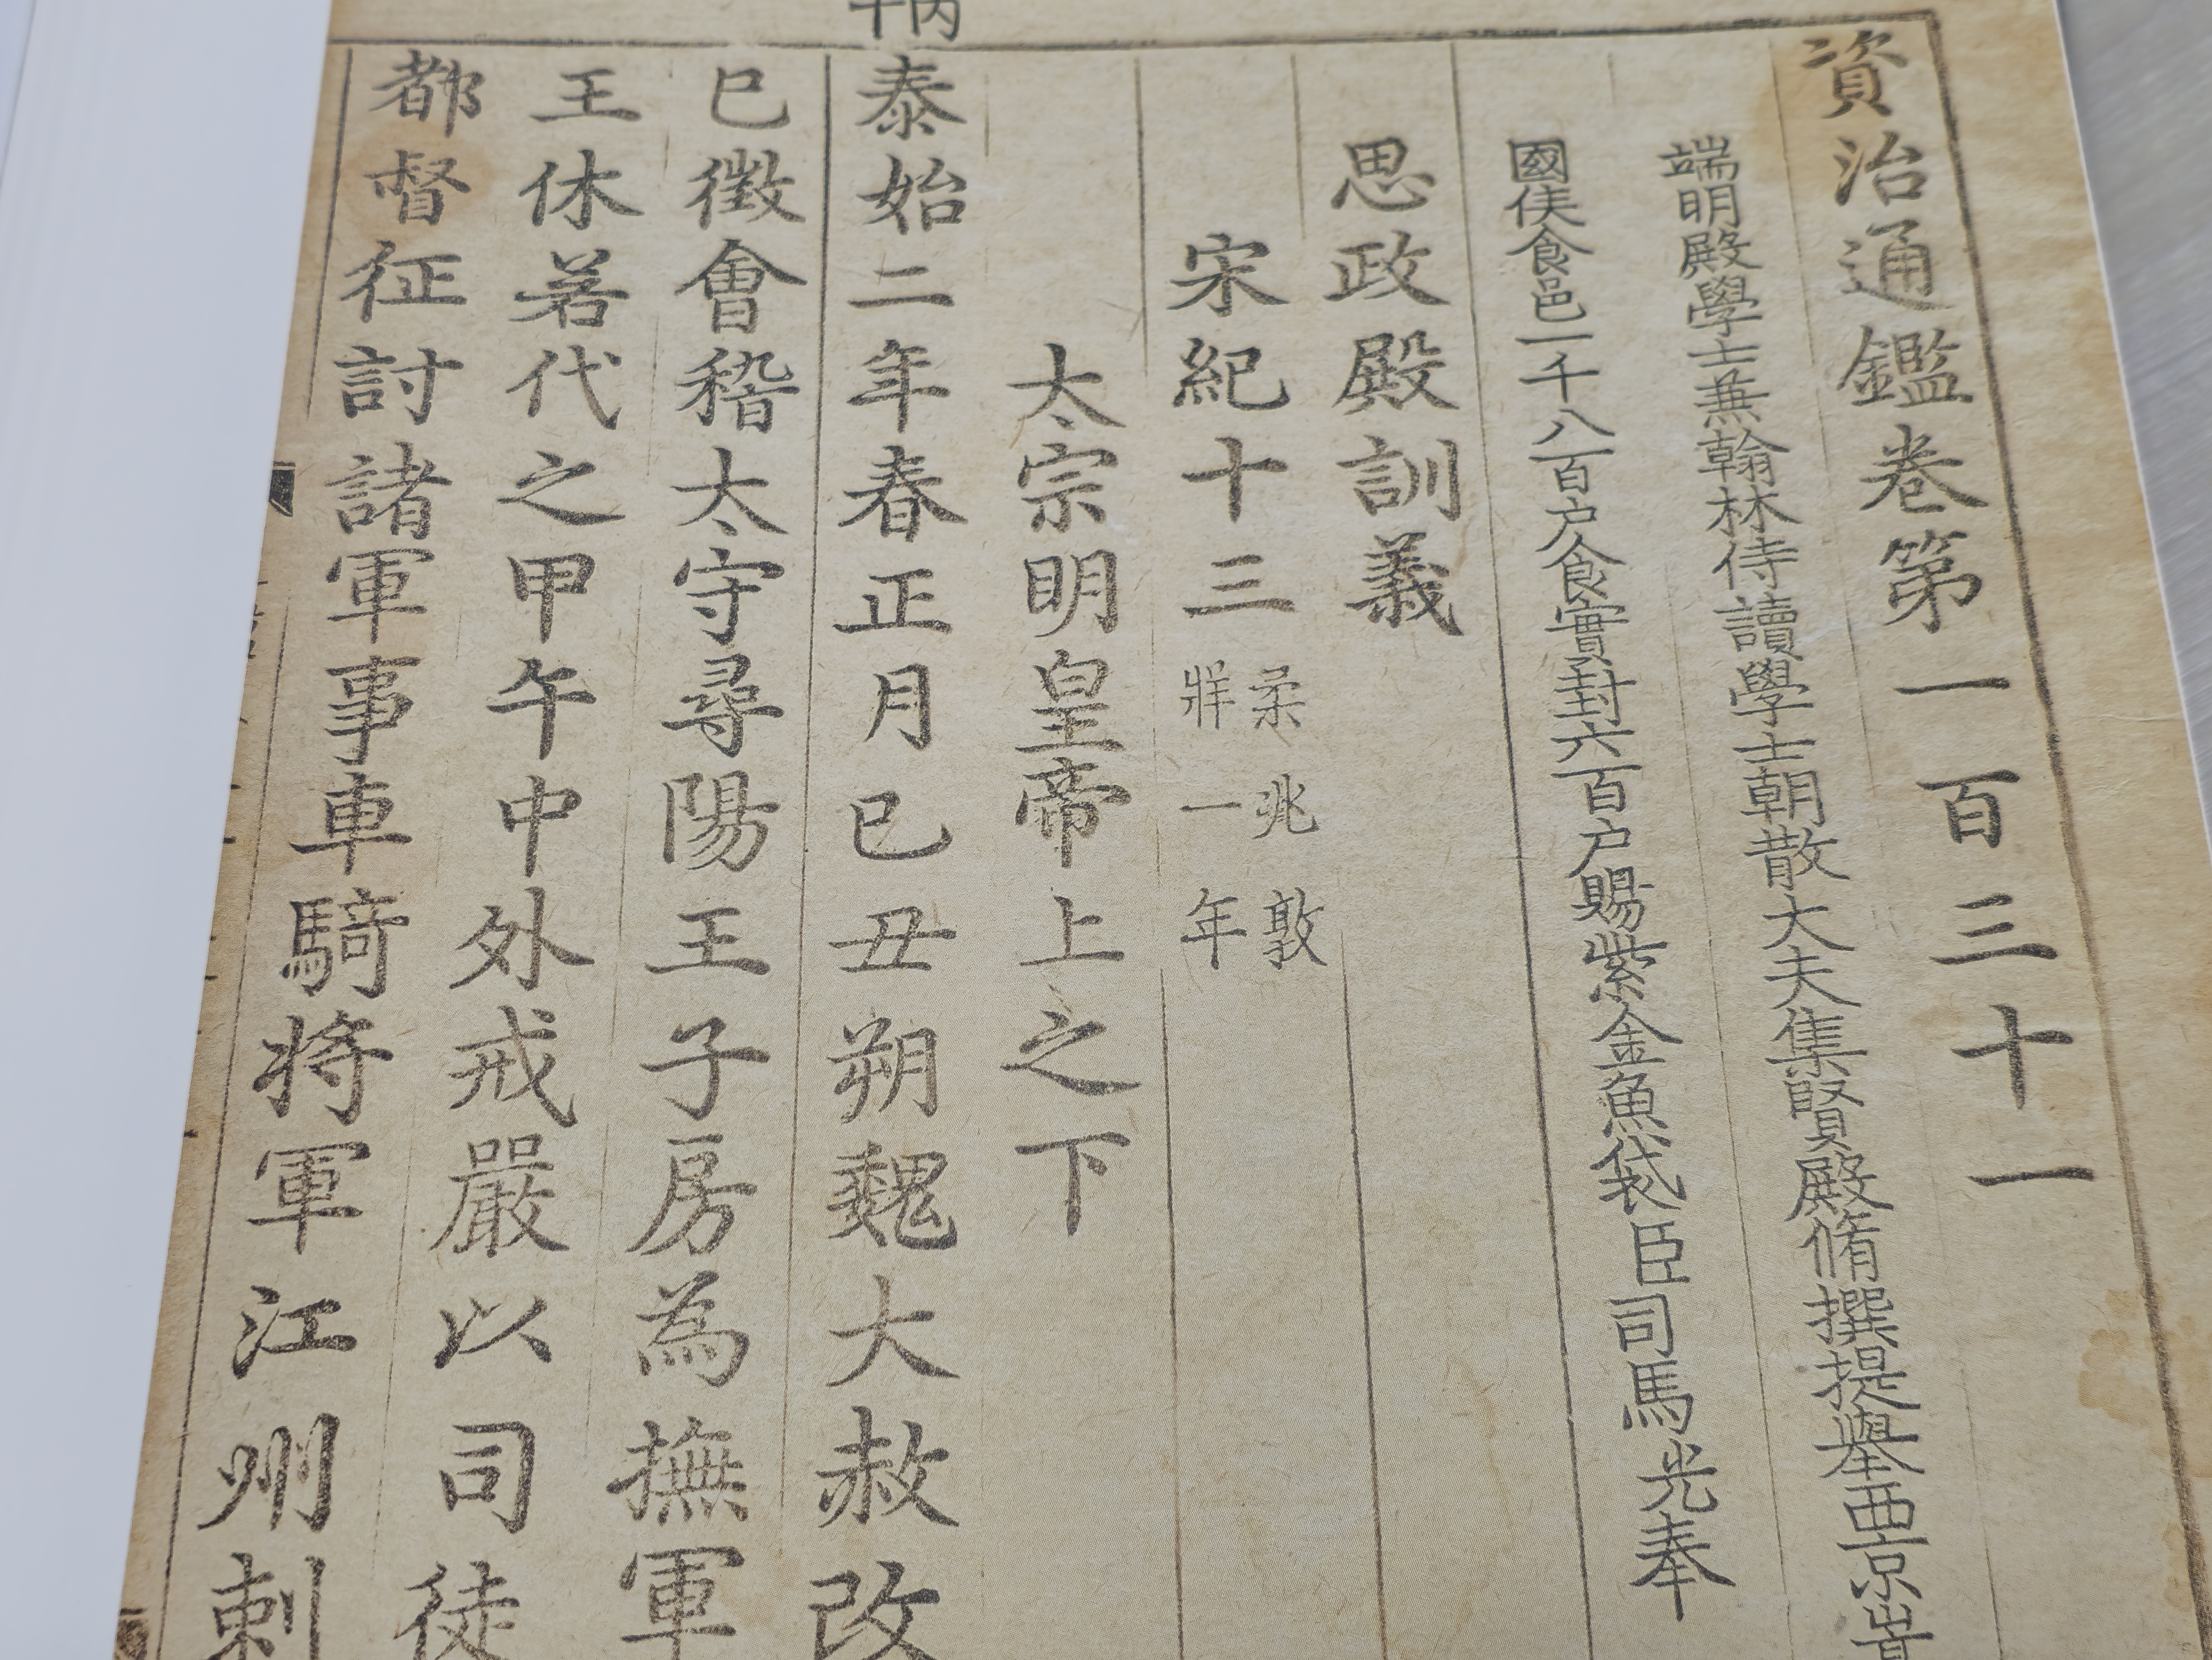 資治通鑑卷第一百三十一
端明殿學士兼翰林侍讀學士朝散大夫集賢殿脩撰提舉西京嵩
國侯食邑一千八百户食實封六百户賜紫金魚袋臣司馬光奉
思政殿訓義
宋紀十三
柔兆敦
牂一年
太宗明皇帝上之下
丙午
泰始二年春正月己丑朔魏大赦改
巳徵會稽太守尋陽王子房為撫軍
王休若代之甲午中外戒嚴以司徒
都督征討諸軍事車騎將軍江州刺